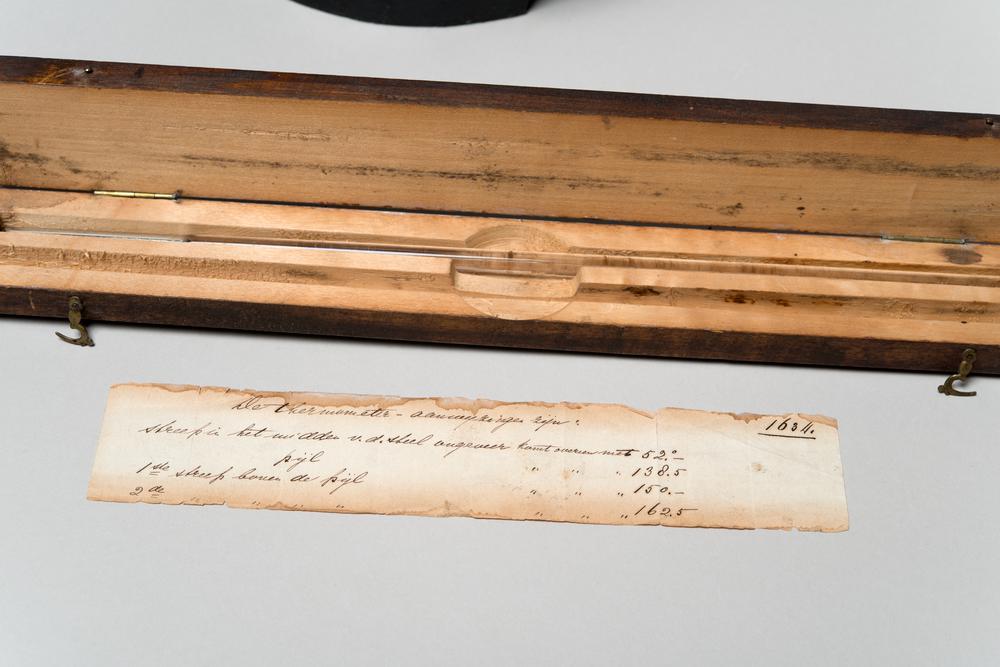 De thermometer-aanwijzingen zijn: 1634.
streep in het midden v.d. steel ongeveer komt overeen met 52.°–
pijl " " " 138.5
1ste streep boven de pijl " " " 150.–
2de " " " " " " 162.5